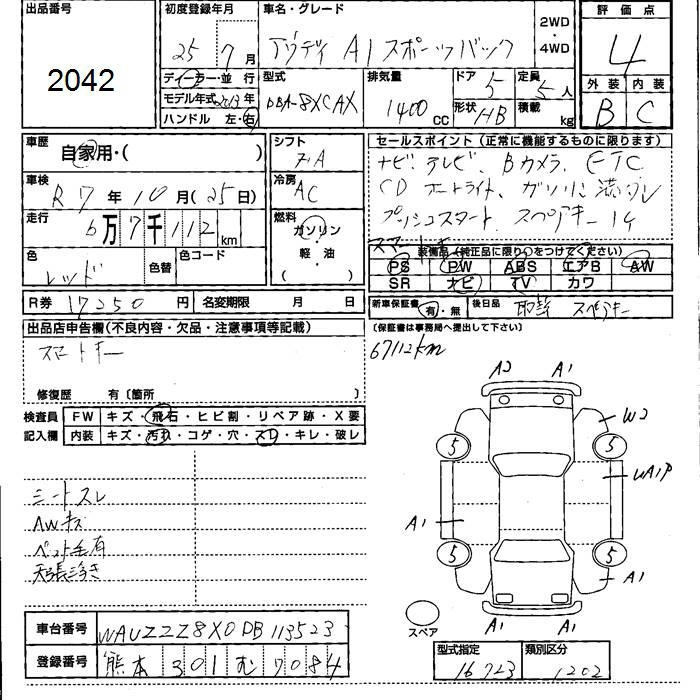 出品番号
2042
初度登録年月
25年 7月
車名・グレード
アウディ A1 スポーツバック
2WD
・
4WD
評価点
4
外装 内装
B C
ディーラー・並行
モデル年式 2013年
ハンドル 左・右
型式
DBA-8XCAX
排気量
1400 CC
ドア
5
形状
HB
定員
5人
積載
kg
車歴
自家用・( )
車検
R7年10月(25日)
走行
6万7千112km
色
レッド
色替
色コード
R券 17250円
名変期限 月 日
シフト
FA
冷房
AC
燃料
ガソリン
軽・油
( )
セールスポイント(正常に機能するものに限ります)
ナビ、テレビ、Bカメラ、ETC
CD オートライト、ガソリン満タン
プッシュスタート スペアキー1ケ
スマートキー
装備品(純正品に限り○をつけてください)
PS PW ABS エアB AW
SR ナビ TV カワ
新車保証書 有・無
後日品 取説 スペアキー
(保証書は事務局へ提出して下さい)
出品店申告欄(不良内容・欠品・注意事項等記載)
スマートキー
修復歴 有〔箇所 〕
67112km
検査員 FW キズ・飛石・ヒビ割・リペア跡・X要
記入欄 内装 キズ・汚れ・コゲ・穴・スレ・キレ・破レ
シートスレ
AWキズ
ペット毛有
天張浮き
A2 A1
W2
5 5
WA1P
A1
5 5
A1
スペア
A1 A1
車台番号 WAUZZZ8X0DB113523
登録番号 熊本 301 む 7084
型式指定
16723
類別区分
1202